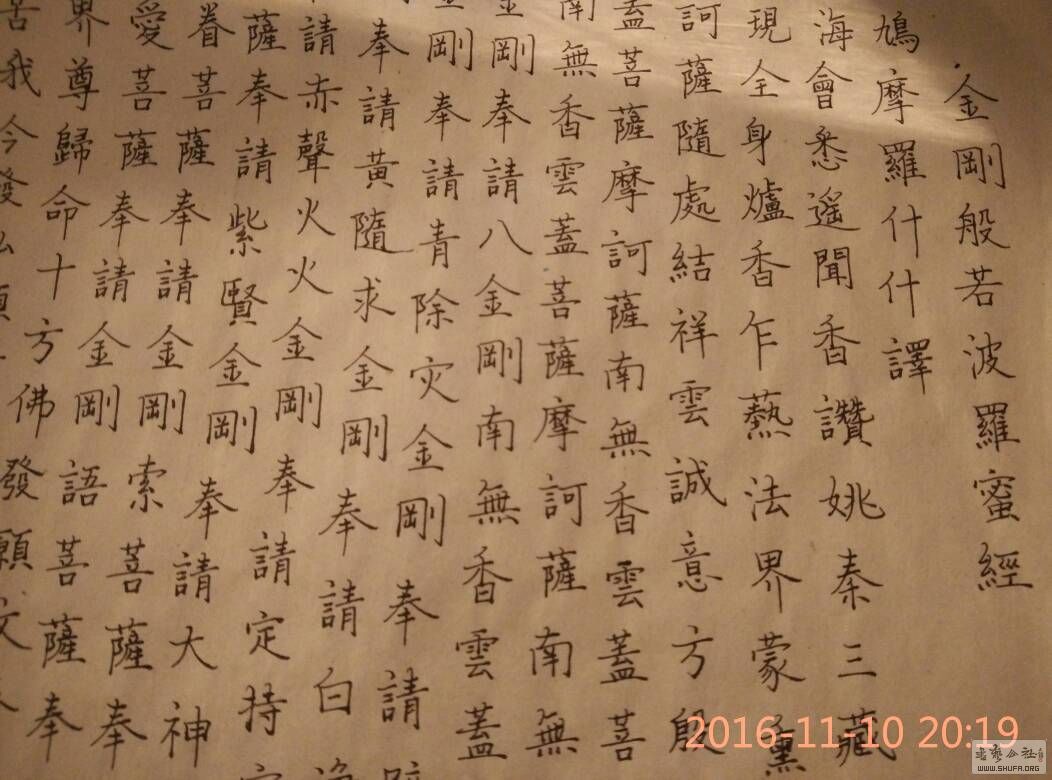 金剛般若波羅蜜經
鳩摩羅什什譯
海會悉遙聞香讚姚秦三藏
現全身爐香乍爇法界蒙熏
訶薩隨處結祥雲誠意方殷
蓋菩薩摩訶薩南無香雲蓋菩
南無香雲蓋菩薩摩訶薩南無
金剛奉請八金剛南無香雲蓋
金剛奉請青除灾金剛奉請
奉請黃隨求金剛奉請白
請赤聲火火金剛奉請定持
薩奉請紫賢金剛奉請大神
眷菩薩奉請金剛索菩薩奉
愛菩薩奉請金剛語菩薩奉
界尊歸命十方佛發願文
苦我今發弘願
2016-11-10 20:19
书艺公社
WWW.SHUFA.ORG